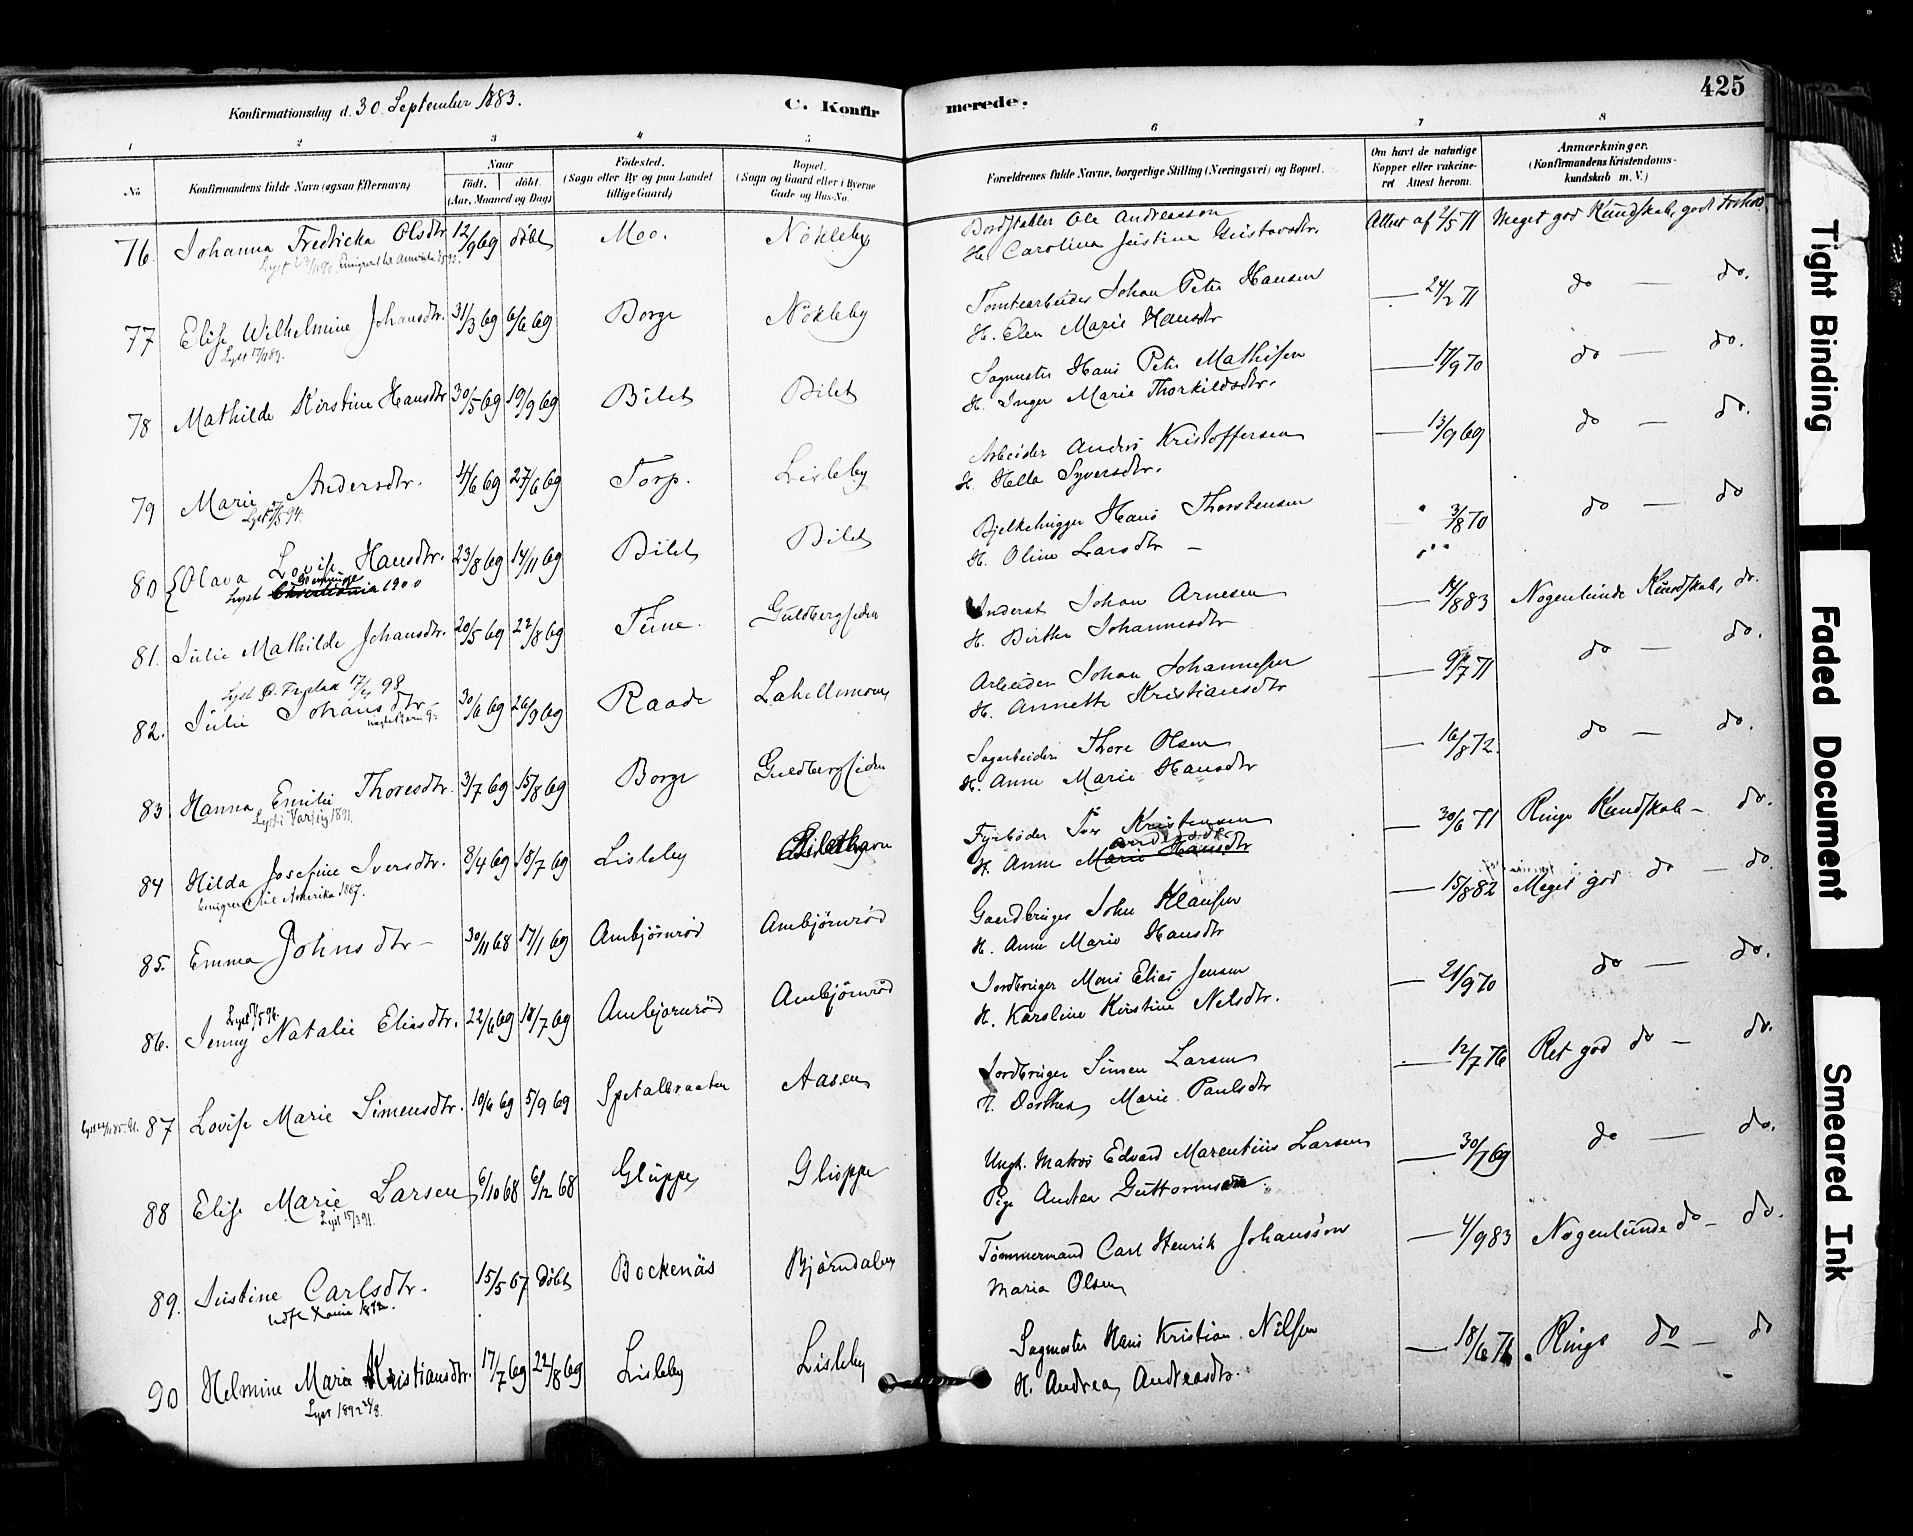 425
Konfirmationsdag d. 30 September 1883.
C. Konfir merede.
1 2 3 4 5 6 7 8
No
Konfirmandens fulde Navn (ogsaa Efternavn)
Naar
født. døbt.
(Aar, Maaned og Dag)
Fødested.
(Sogn eller By og paa Landet
tillige Gaard)
Bopæl.
(Sogn og Gaard eller i Byerne
Gade og Hus-No.
Forældrenes fulde Navne, borgerlige Stilling (Næringsvei) og Bopæl.
Om havt de naturlige
Kopper eller vakcine-
ret Attest herom.
Anmærkninger.
(Konfirmandens Kristendoms-
kundskab m. V.)
76. Johanna Fredricka Olsdtr 12/9 69 døbt Moo. Nökleby Bordstabler Ole Andreasson Attest af 2/5 71 Meget god Kundskab, godt Forhold
H. Carolina Justina Gustavsdtr.
Emigreret til Amerika
77 Elise Wilhelmine Johansdtr. 31/3 69 6/6 69 Borge Nökleby Tomtearbeider Johan Peter Hansen — 24/2 71 do — do.
Lyst 17/11 89.
H. Elen Marie Hansdtr
78 Mathilde Kirstine Hansdtr 30/5 69 19/9 69 Bilet Bilet Sagmester Hans Peter Mathisen — 17/9 70 do — do.
H. Inger Marie Thorkildsdtr.
79 Marie Andersdtr. 4/6 69 27/6 69 Torp. Lisleby Arbeider Anders Kristoffersen — 13/9 69 do — do.
H. Helle Syversdtr.
80 Olava Lovise Hansdtr. 23/8 69 14/11 69 Bilet Bilet Bjelkehugger Hans Thorstensen 3/8 70 do — do
Lyst Christiania 1900
H. Oline Larsdtr —
81. Julie Mathilde Johansdtr. 20/5 69 22/8 69 Tune. Guldbergsiden Inderst Johan Arnesen — 14/8 83 Nogenlunde Kundskab, do.
H. Birthe Johannesdtr
Lyst 98
82. Julie Johansdtr — 30/6 69 26/9 69 Raade Lahellemoen Arbeider Johan Johannesen — 9/7 71 do — do.
H. Annette Kristiansdtr
83 Hanna Emilie Thoresdtr. 3/7 69 15/8 69 Borge Guldbergsiden Sagarbeider Thore Olsen — 16/8 72. do — do.
Lyst i Varteig 1891.
H. Anne Marie Hansdtr
84 Hilda Josefine Iversdtr. 8/4 69 18/7 69 Lisleby Fyrböder Iver Kristensen — 30/6 71 Ringe Kundskab — do.
Emigreret til Amerika 1887.
H. Anne Marie Hansdtr
85. Emma Johnsdtr — 30/11 68 17/1 69 Ambjörnröd Ambjörnröd Gaardbruger John Klausen — 15/8 82 Meget god do — do
H. Anne Marie Hansdtr
86. Jenny Natalie Eliasdtr. 22/6 69 18/7 69 Ambjörnröd Ambjörnröd Jordbruger Mons Elias Jensen — 21/9 70 do — do.
H. Karoline Kirstine Nelsdtr.
87 Lovise Marie Simensdtr. 10/6 69 5/9 69 Spetalbraaten Aasen Jordbruger Simen Larsen — 12/7 76 Ret god do — do.
H. Dorthea Marie Paulsdtr
88 Elise Marie Larsen 6/10 68 6/12 68 Gluppe Gluppe Ungk. Matros Edvard Marentius Larsen — 30/7 69 do — do.
Lyst 15/3 91.
Pige Andrea Guttormsen
89. Justine Carlsdtr. 15/5 67 döbt Bockenäs Bjørndalen Tømmermand Carl Henrik Johansson — 4/9 83 Nogenlunde do — do.
Maria Olsen
90 Helmine Marie Kristiansdtr. 17/7 69 22/8 69 Lisleby Lisleby Sagmester Hans Kristian Nilsen — 18/6 Ringe do — do
Lyst 1892
H. Andrea Andreasdtr.
Tight Binding
Faded Document
Smeared Ink